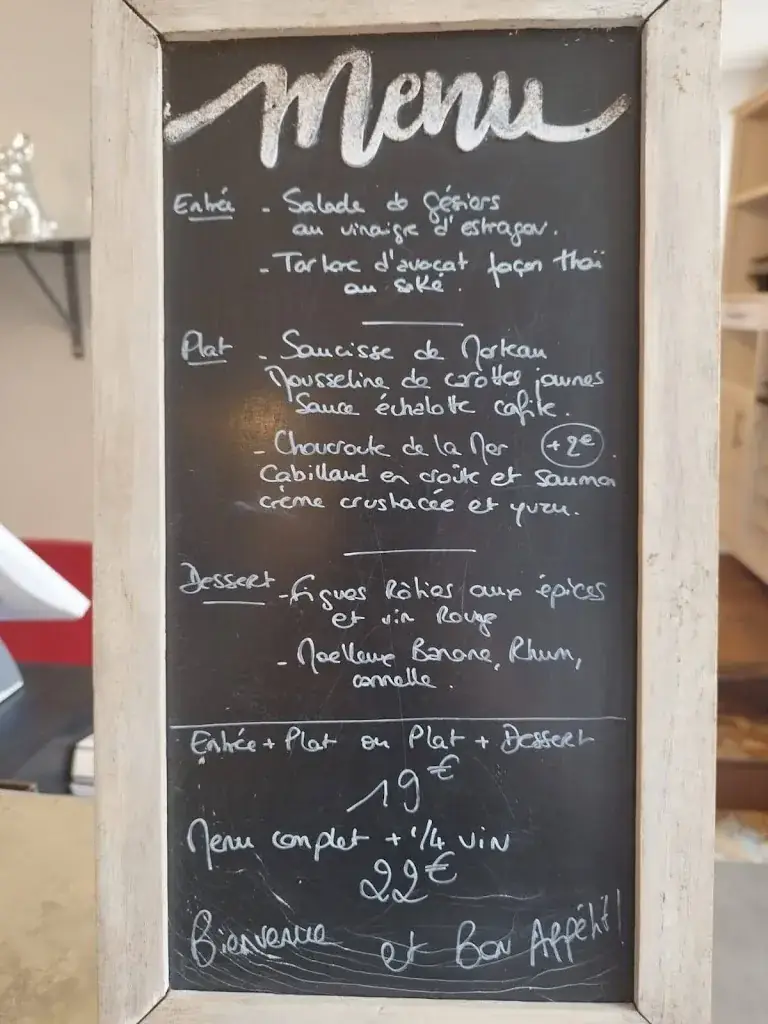 Menu
Entrée - Salade de Gésiers
au vinaigre d'estragon.
- Tartare d'avocat façon thaï
au saké.
Plat - Saucisse de Morteau
Mousseline de carottes jaunes
Sauce échalotte confite.
- Choucroute de la Mer +2€
Cabillaud en croûte et saumon
crème crustacée et yuzu.
Dessert - Figues Rôties aux épices
et vin Rouge
- Moelleux Banane, Rhum,
cannelle.
Entrée + Plat ou Plat + Dessert
19€
Menu complet + 1/4 VIN
22€
Bienvenue et Bon Appétit!